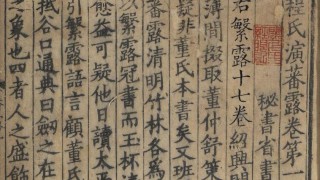 程氏演蕃露卷第一
秘書省書
右繁露十七卷紹興間
薄間掇取董仲舒策
疑非董氏本書矣又班
蕃露清明竹林各爲
以繁露冠書而玉杯清
愈益可疑他日讀太平
引繁露語言顧董氏
抵谷口通典曰劒之在
之象也四者人之盛飾